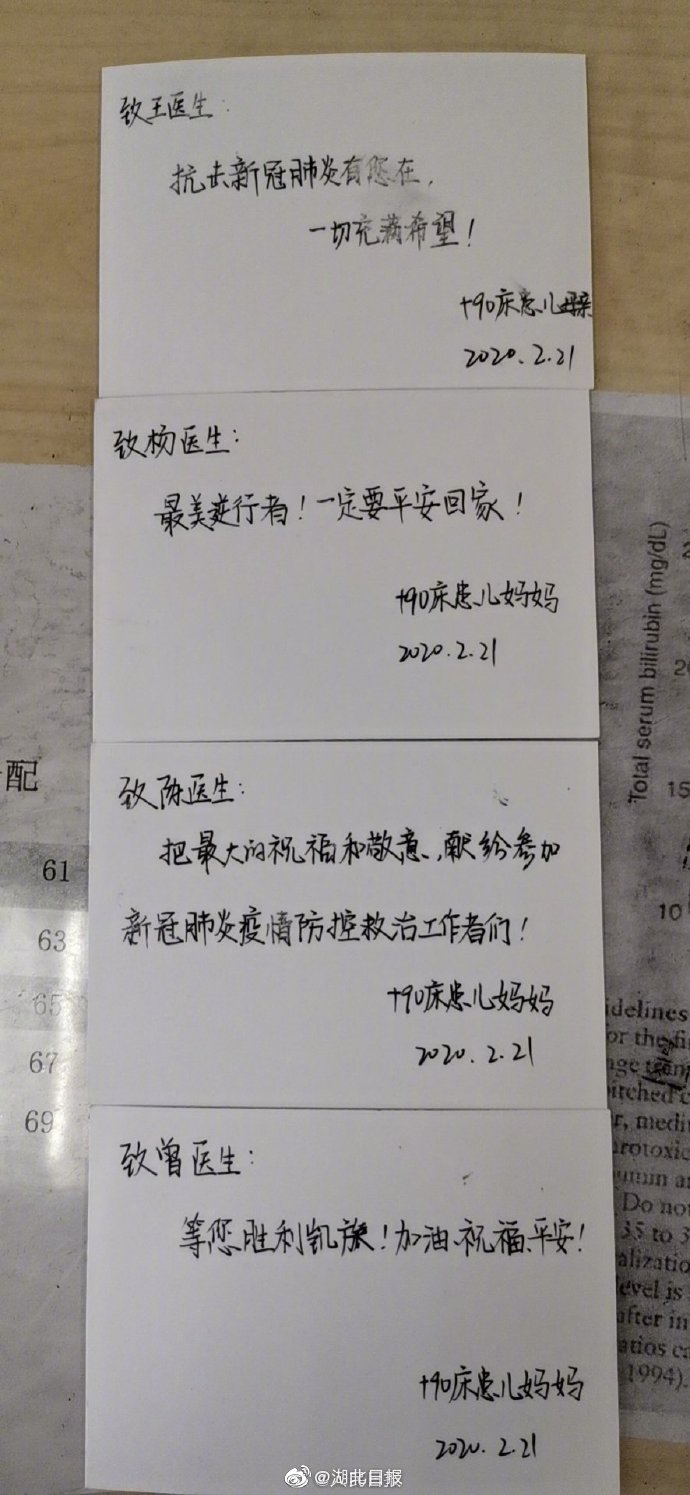 致王医生:
抗击新冠肺炎有您在,
一切充满希望!
+90床患儿母亲
2020.2.21
致杨医生:
最美逆行者!一定要平安回家!
+90床患儿妈妈
2020.2.21
致陈医生:
把最大的祝福和敬意,献给参加
新冠肺炎疫情防控救治工作者们!
+90床患儿妈妈
2020.2.21
致曾医生:
等您胜利凯旋!加油、祝福、平安!
+90床患儿妈妈
2020.2.21
配
61
63
65
67
69
Total serum bilirubin (mg/dL)
2
20
15
10
idelines
or the fi
age
pitched c
r, medi
rotoxic
Do no
35 to 3
alizatio
level is
after in
atios ca
1994).
@湖北日报